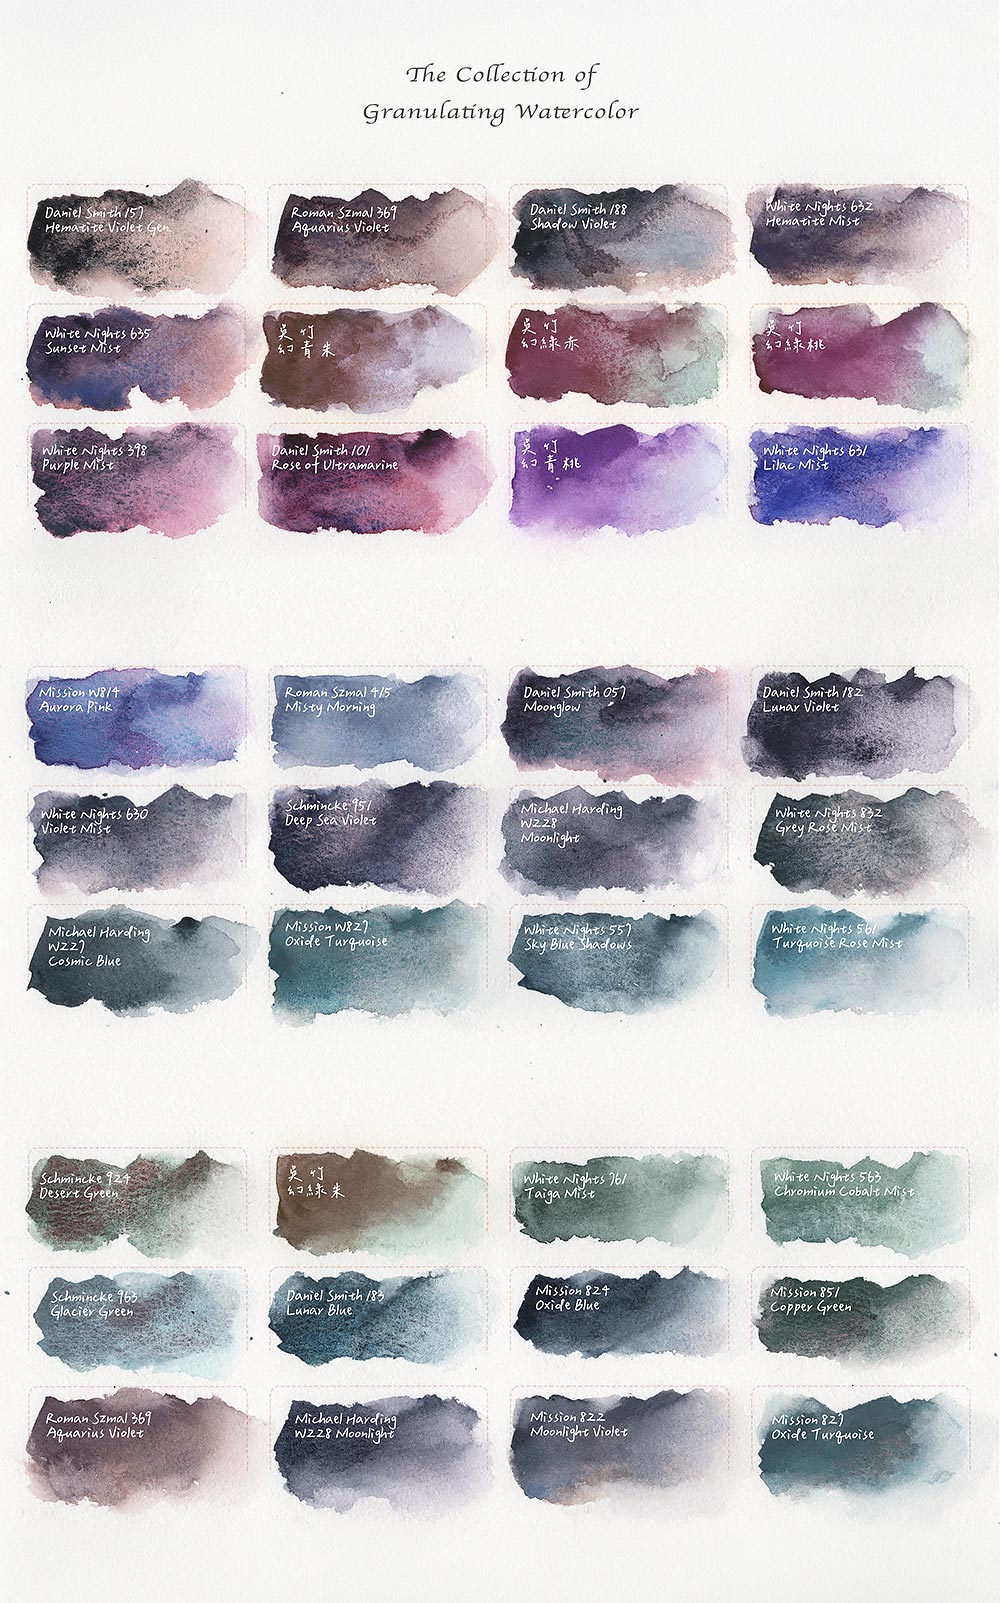 The Collection of
Granulating Watercolor
Daniel Smith 157
Hematite Violet Gen.
Roman Szmal 369
Aquarius Violet
Daniel Smith 188
Shadow Violet
White Nights 632
Hematite Mist
White Nights 635
Sunset Mist
吳竹
幻青朱
吳竹
幻綠赤
吳竹
幻綠桃
White Nights 398
Purple Mist
Daniel Smith 101
Rose of Ultramarine
吳竹
幻青桃
White Nights 631
Lilac Mist
Mission W814
Aurora Pink
Roman Szmal 415
Misty Morning
Daniel Smith 057
Moonglow
Daniel Smith 182
Lunar Violet
White Nights 630
Violet Mist
Schmincke 951
Deep Sea Violet
Michael Harding
W228
Moonlight
White Nights 832
Grey Rose Mist
Michael Harding
W227
Cosmic Blue
Mission W827
Oxide Turquoise
White Nights 557
Sky Blue Shadows
White Nights 561
Turquoise Rose Mist
Schmincke 924
Desert Green
吳竹
幻綠朱
White Nights 761
Taiga Mist
White Nights 563
Chromium Cobalt Mist
Schmincke 963
Glacier Green
Daniel Smith 183
Lunar Blue
Mission 824
Oxide Blue
Mission 851
Copper Green
Roman Szmal 369
Aquarius Violet
Michael Harding
W228 Moonlight
Mission 822
Moonlight Violet
Mission 827
Oxide Turquoise